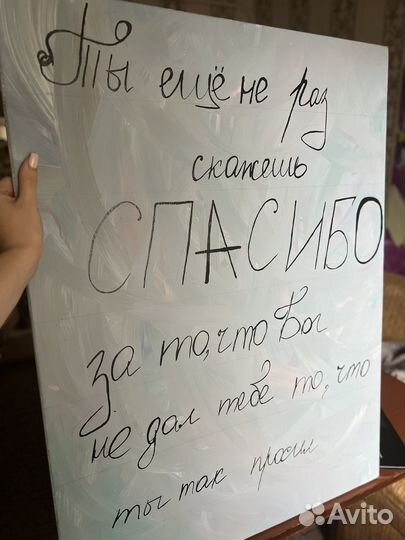 Ты ещё не раз
скажешь
СПАСИБО
за то, что Бог
не дал тебе то, что
ты так просил
Avito